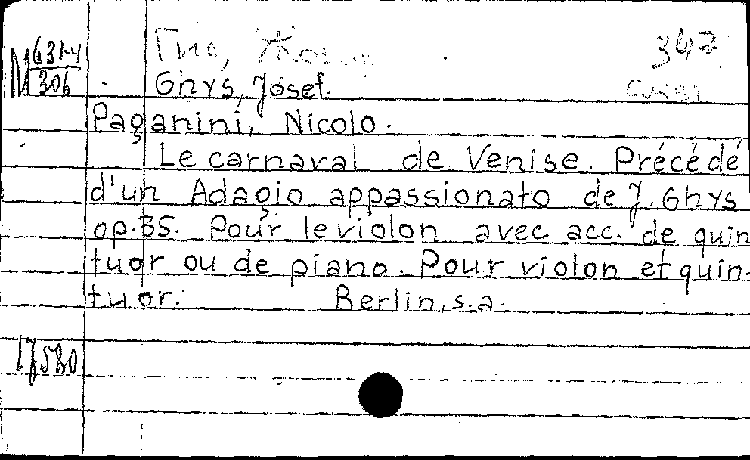 М 631-4
306
Гис, Жозеф
347
Ghys, Josef.
Paganini, Nicolo.
Le carnaval de Venise. Précédé
d'un Adagio appassionato de J. Ghys
op.35. Pour le violon avec acc. de quin
tuor ou de piano. Pour violon et quin-
tuor. Berlin, s.a.
17530